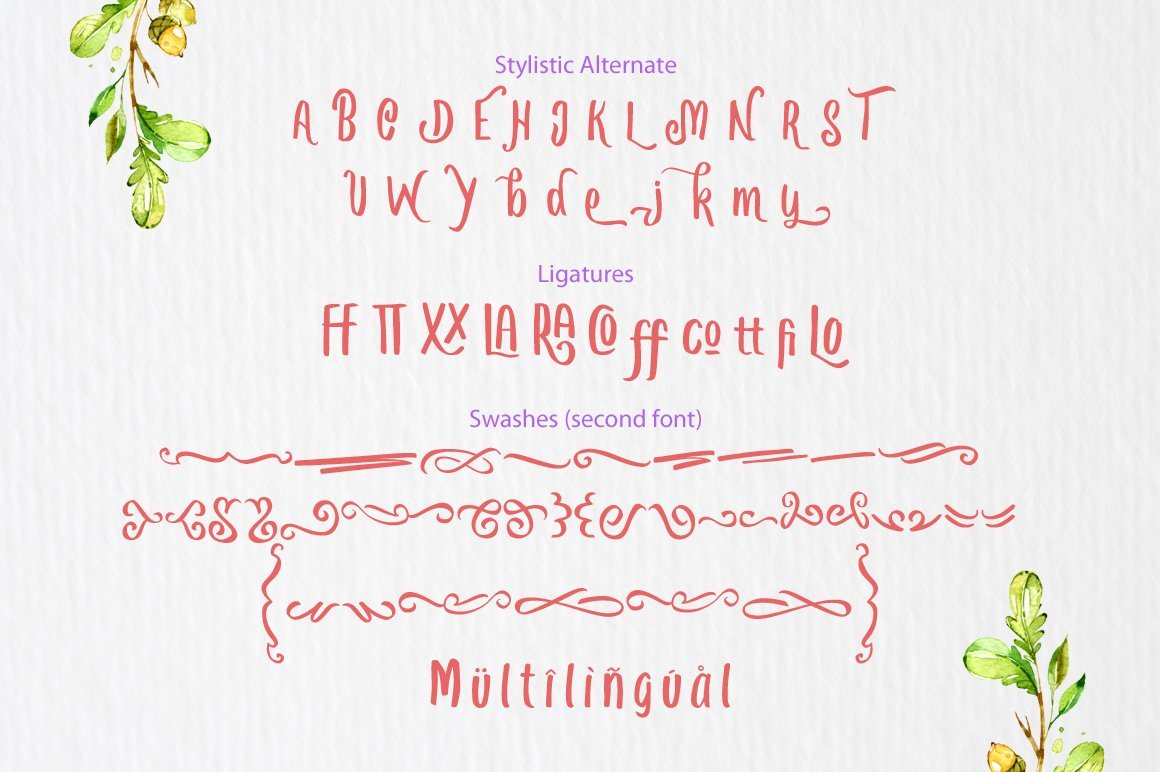 Stylistic Alternate
A B C D E H J K L M N R S T
U W Y b d e j k m y
Ligatures
FF TT XX LA RA CO ff co tt fi LO
Swashes (second font)
Mültîlìñgúål